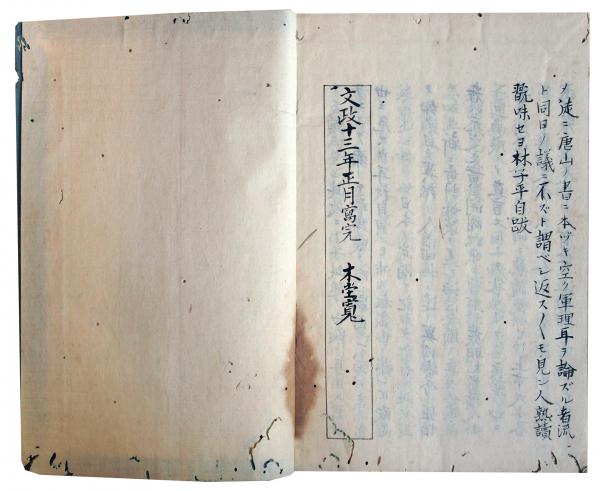 メ徒ニ唐山ノ書ニ本ヅキ空ク軍理耳ヲ論ズル者流
ト同日ノ議ニ不ズト謂ベシ返ス〲モ見ン人熟讀
翫味セヨ林子平自跋
文政十三年正月寫完 木堂寛